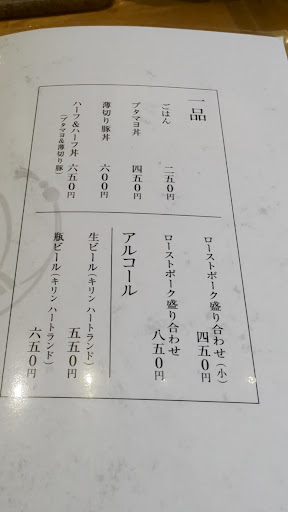 一品
ごはん 二五〇円
ブタマヨ丼 四五〇円
薄切り豚丼 六〇〇円
ハーフ&ハーフ丼 六五〇円
(ブタマヨ&薄切り豚)
ローストポーク盛り合わせ(小)
四五〇円
ローストポーク盛り合わせ
八五〇円
アルコール
生ビール(キリン ハートランド)
五五〇円
瓶ビール(キリン ハートランド)
六五〇円